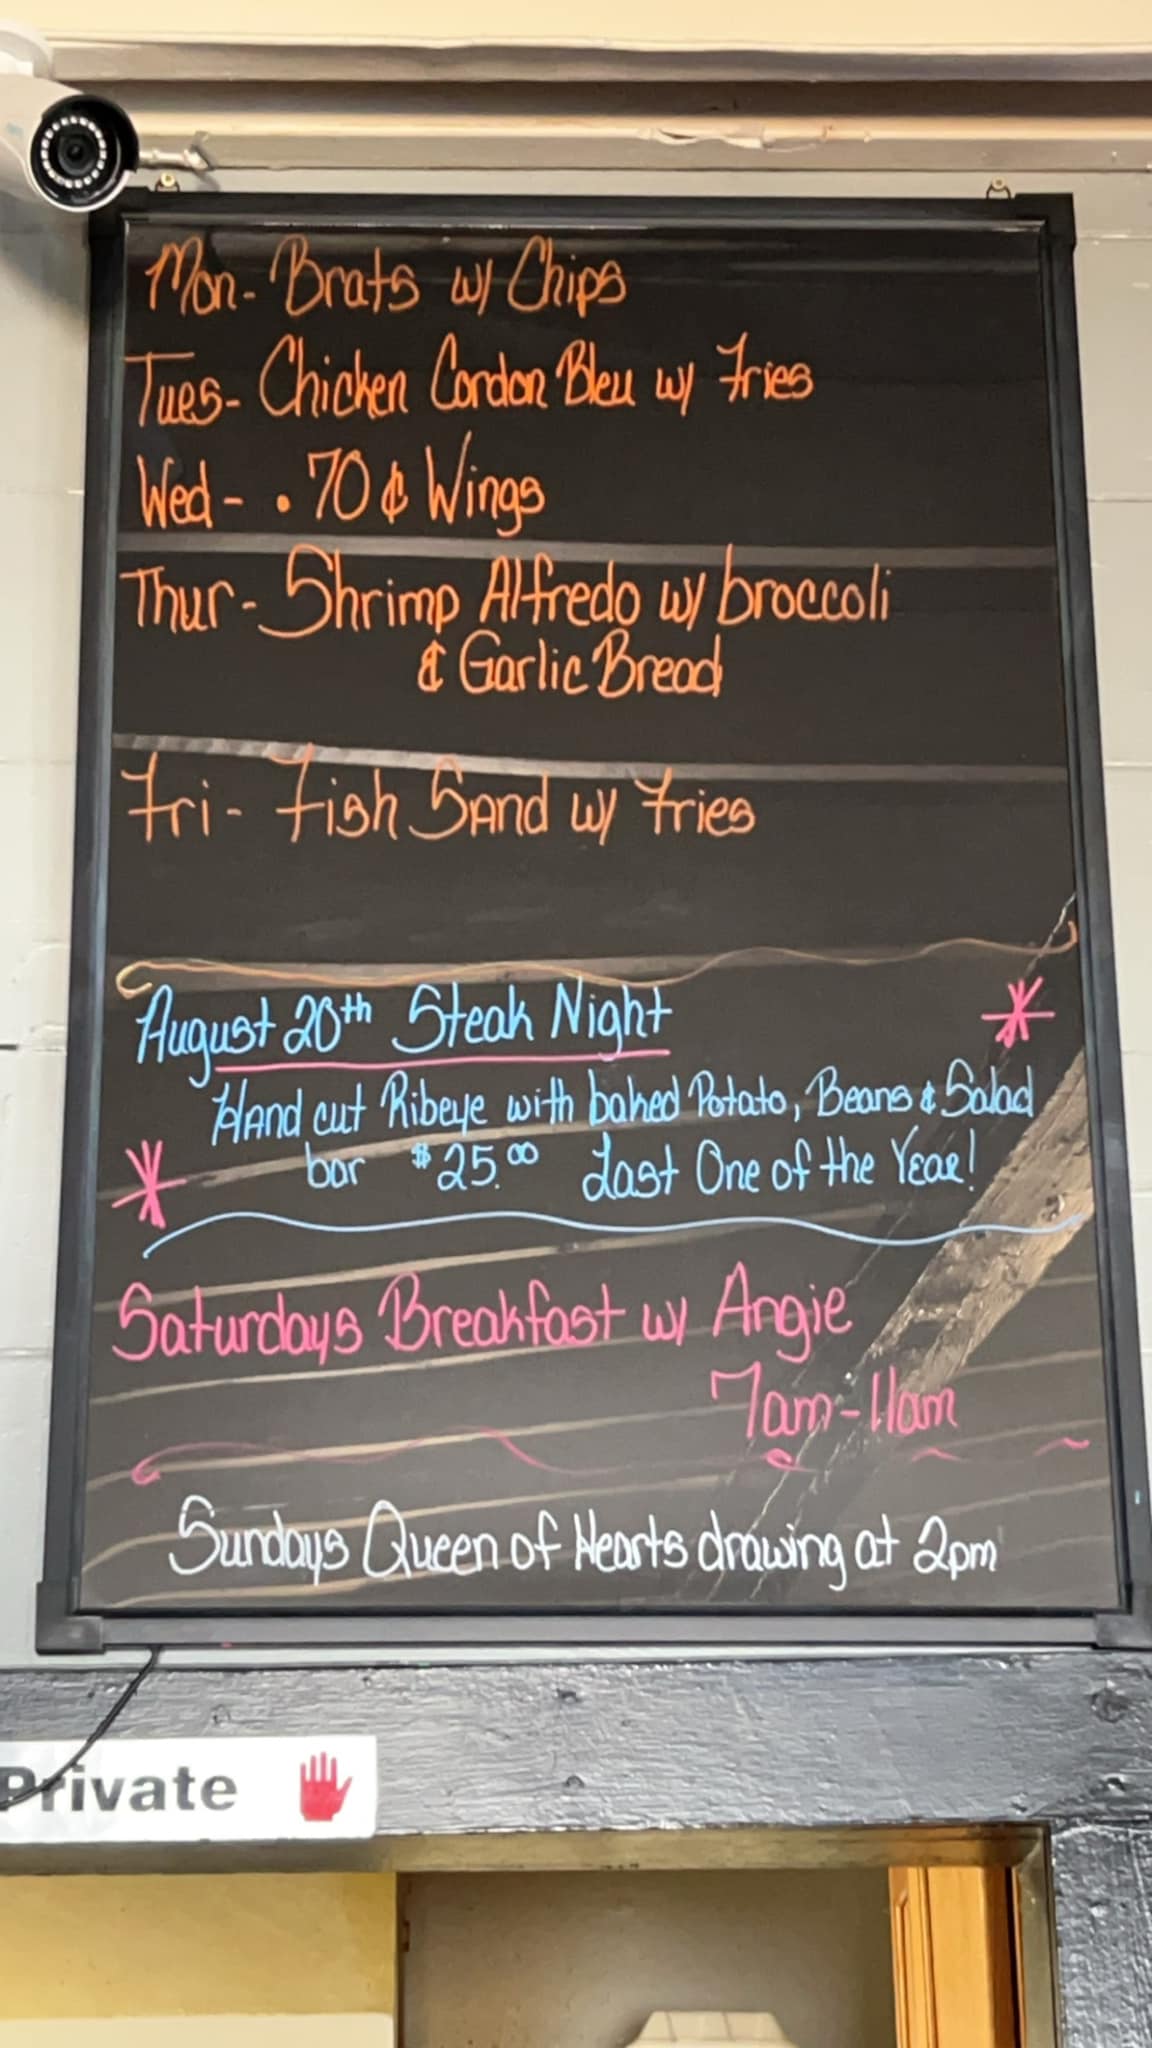 Mon- Brats w/ Chips
Tues- Chicken Cordon Bleu w/ Fries
Wed- .70¢ Wings
Thur- Shrimp Alfredo w/ broccoli
& Garlic Bread
Fri- Fish Sand w/ Fries
August 20th Steak Night
Hand cut Ribeye with baked Potato, Beans & Salad
bar $25.00 Last One of the Year!
Saturdays Breakfast w/ Angie
7am-11am
Sundays Queen of Hearts drawing at 2pm
Private